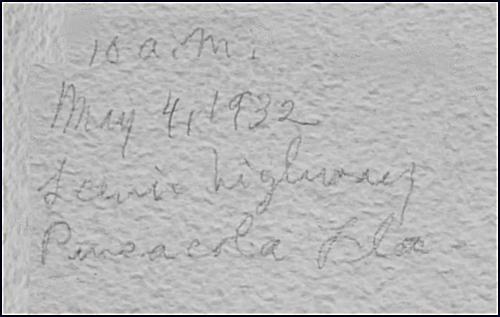 10 a.m.
May 4, 1932
Scenic highway
Pensacola Fla.